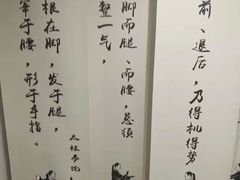 前、退后，乃得机得势
脚而腿、而腰，总须
整一气，
根在脚，发于腿，
宰于腰，形于手指。
太极拳论